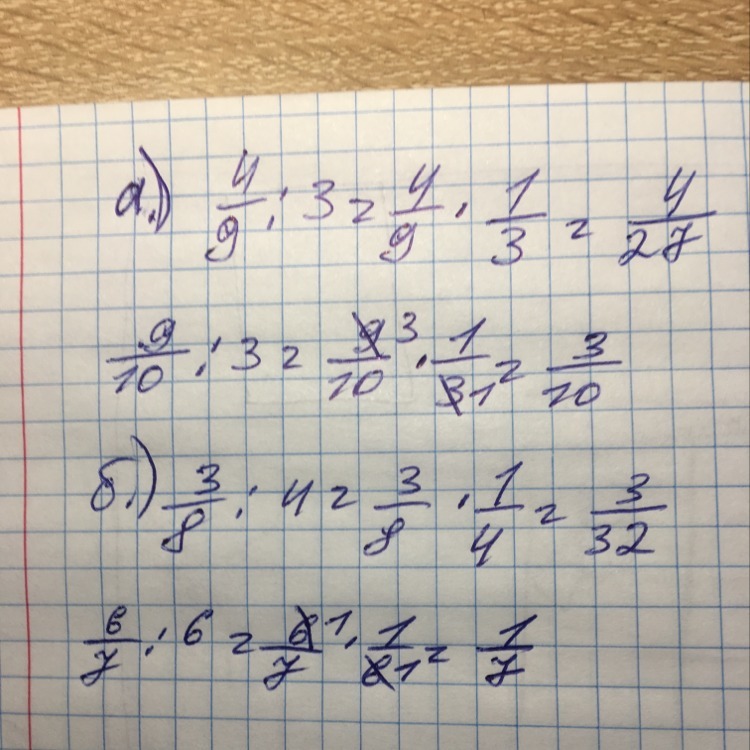 а.) 4/9 : 3 = 4/9 · 1/3 = 4/27
9/10 : 3 = 9 3/10 · 1/3 1 = 3/10
б.) 3/8 : 4 = 3/8 · 1/4 = 3/32
6/7 : 6 = 6 1/7 · 1/6 1 = 1/7